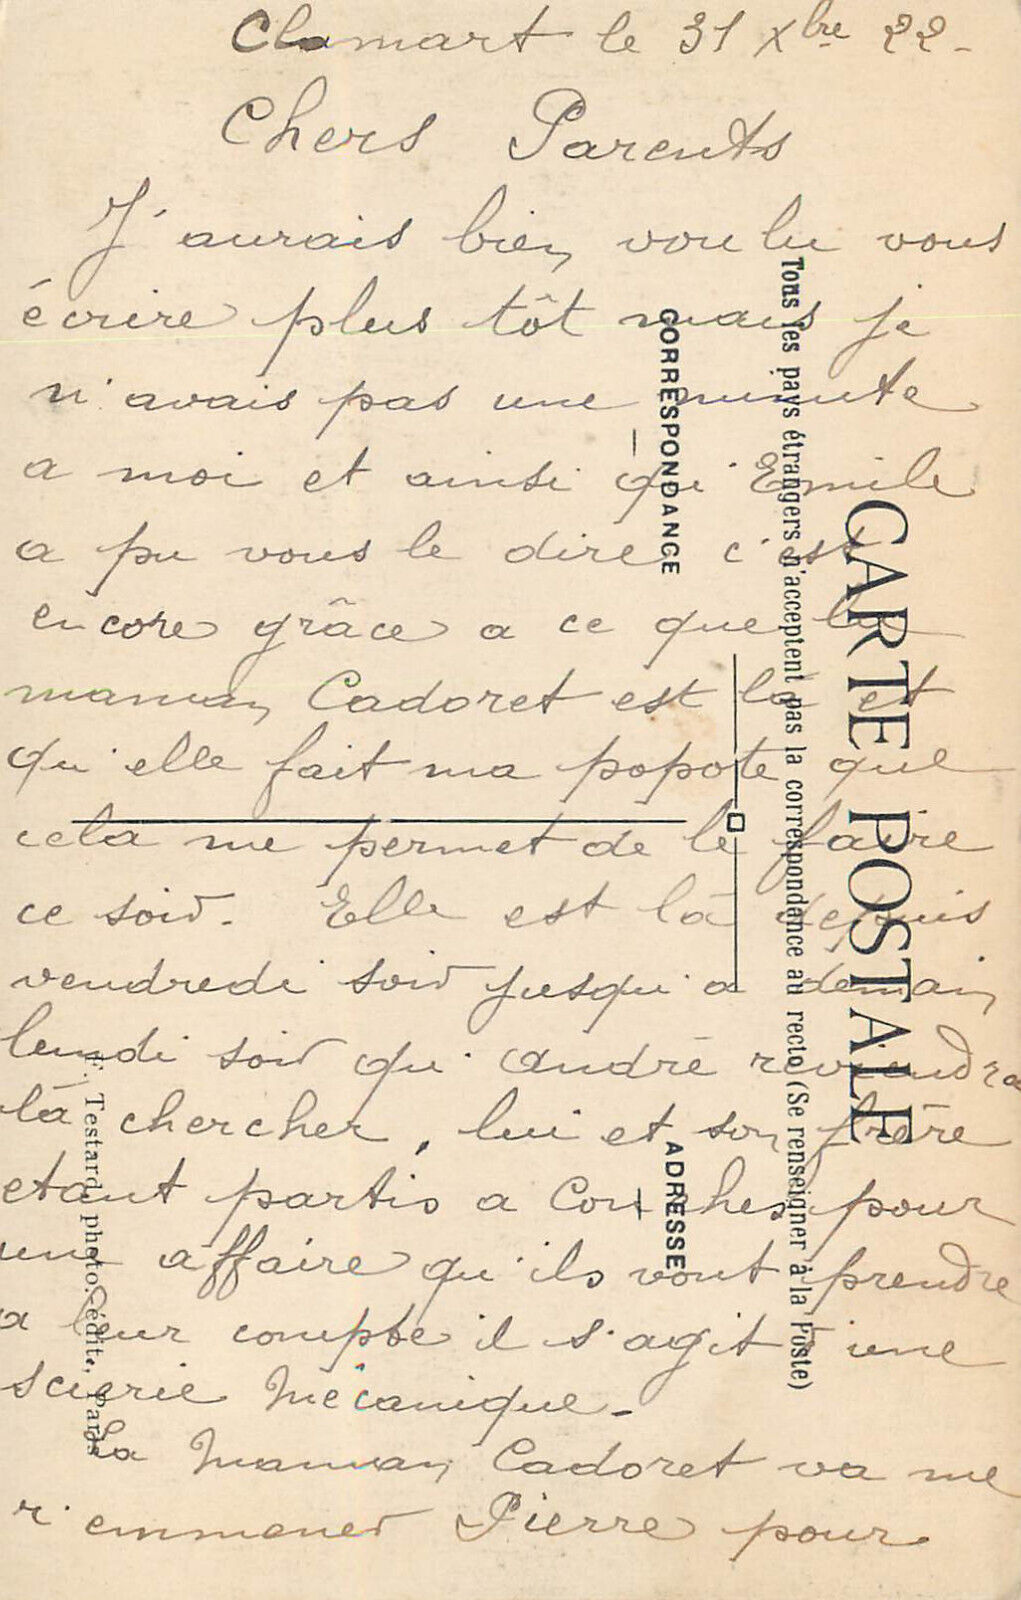 Clamart le 31 Xbre 22-
Chers Parents
J'aurais bien voulu vous
écrire plus tôt mais je
n'avais pas une minute
a moi et ainsi qu'Emile
a pu vous le dire c'est
encore grâce a ce que la
maman Cadoret est là et
qu'elle fait ma popote que
cela me permet de le faire
ce soir. Elle est là depuis
vendredi soir jusqu'a demain
lundi soir qu'André reviendra
là chercher, lui et son frère
etant partis a Conches pour
une affaire qu'ils vont prendre
a leur compte il s'agit d'une
scierie Mécanique.
La Maman Cadoret va me
r'emmener Pierre pour
CARTE POSTALE
Tous les pays étrangers n'acceptent pas la correspondance au recto (Se renseigner à la Poste)
CORRESPONDANCE
ADRESSE
F. Testard, photo.-édit., Paris